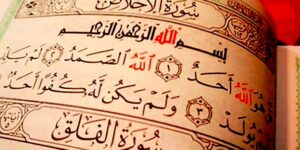 سُورَةُ الْإِخْلَاصِ
بِسْمِ اللَّهِ الرَّحْمَٰنِ الرَّحِيمِ
هُوَ اللَّهُ أَحَدٌ ١ اللَّهُ الصَّمَدُ ٢ لَمْ يَلِدْ
يُولَدْ ٣ وَلَمْ يَكُن لَّهُ كُفُوًا أَحَدٌ
سُورَةُ الْفَلَقِ